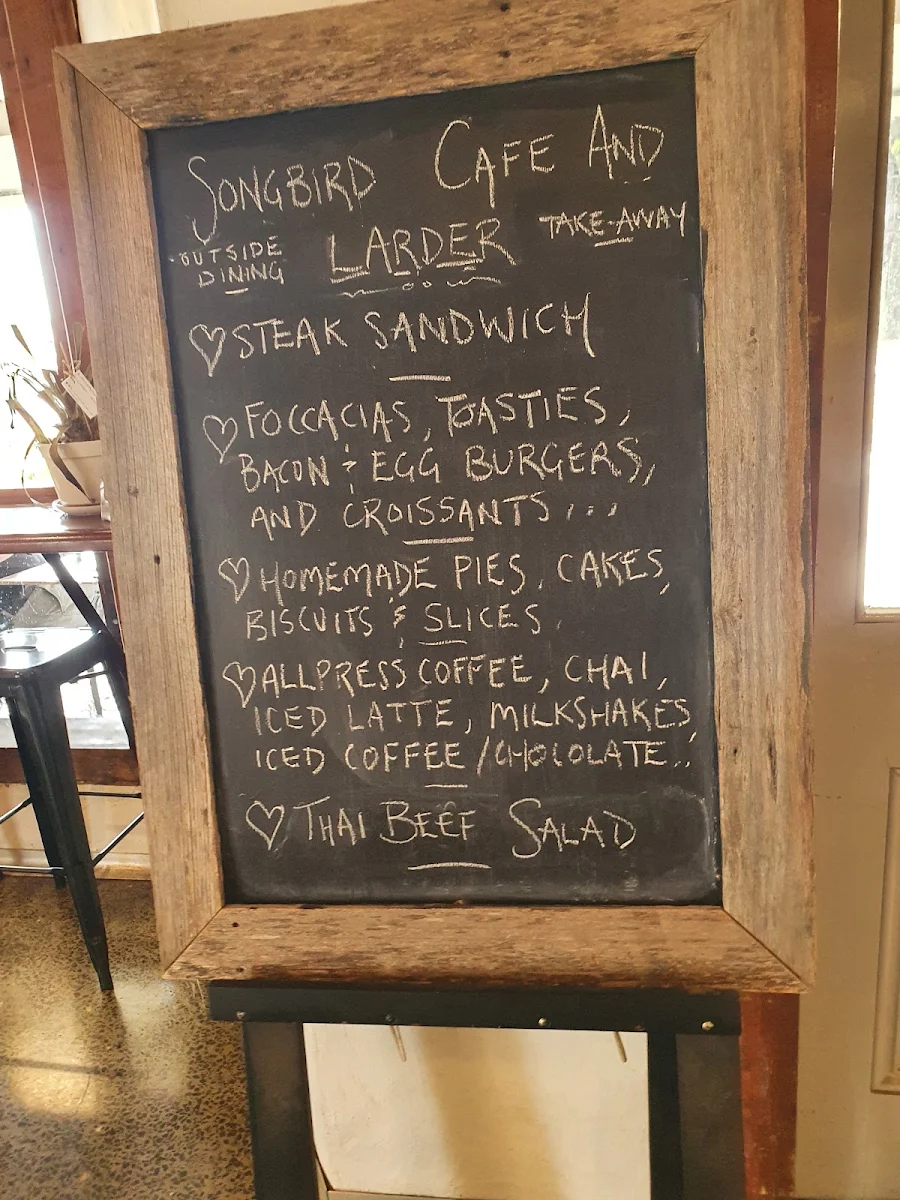 SONGBIRD CAFE AND
LARDER
OUTSIDE
DINING
TAKE-AWAY
STEAK SANDWICH
FOCCACIAS, TOASTIES,
BACON & EGG BURGERS,
AND CROISSANTS...
HOMEMADE PIES, CAKES,
BISCUITS & SLICES.
ALLPRESS COFFEE, CHAI,
ICED LATTE, MILKSHAKES,
ICED COFFEE/CHOLOLATE..
THAI BEEF SALAD